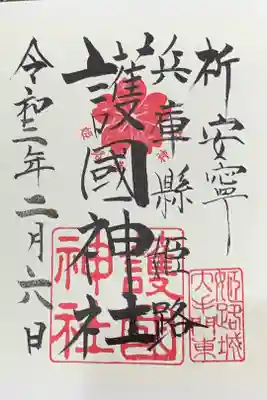 祈安寧
兵庫縣姫路
護國神社
令和二年二月六日
護国神社
姫路城大手東